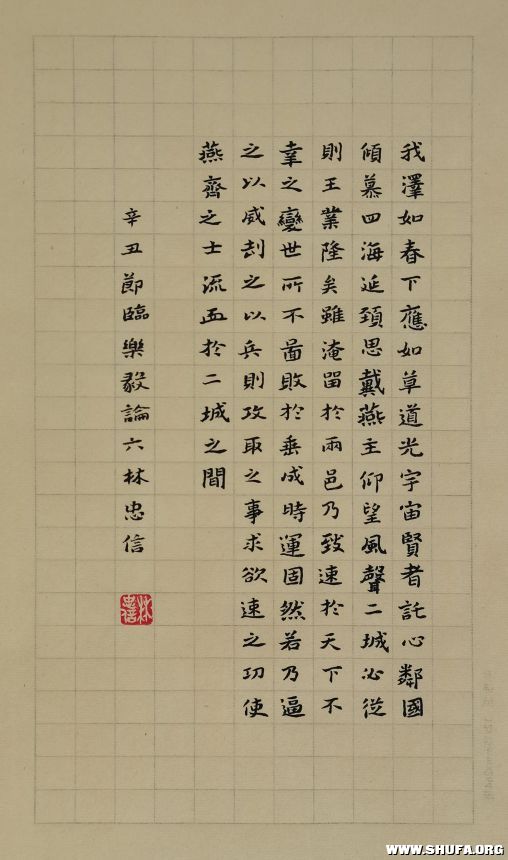 我澤如春下應如草道光宇宙賢者託心鄰國
傾慕四海延頚思戴燕主仰望風聲二城必從
則王業隆矣雖淹留於兩邑乃致速於天下不
幸之變世所不啚敗於垂成時運固然若乃逼
之以威刼之以兵則攻取之事求欲速之功使
燕齊之士流血於二城之間
辛丑節臨樂毅論六林忠信
林忠信
WWW.SHUFA.ORG